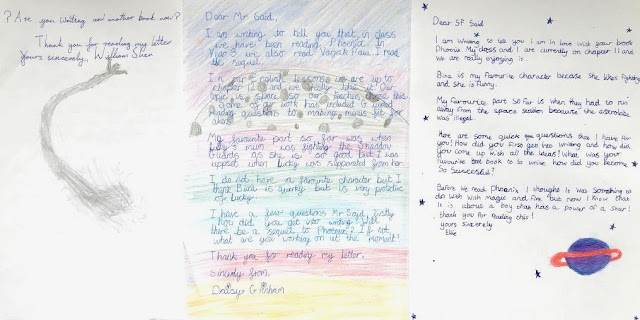 ? Are you writing another book now?
Thank you for reading my letter
Yours sincerely, William
Dear Mr Said,
I am writing to tell you that in class
we have been reading Phoenix. In
Year 3 we also read Varjak Paw. I read
the sequel.
In our English lessons we are up to
chapter 12 and we really like it. Our
topic is space so our teacher chose this
of work has included Guided
Reading questions to making
My favourite part so far was when
Lucky's mum was fighting the Shadow
Guards as she is so good but I was
upset when Lucky was separated from her.
I do not have a favourite character but I
think Bixa is quirky but is very protective
of Lucky.
I have a few questions Mr Said, firstly
how did you get into writing? Will
there be a sequel to Phoenix? If not,
what are you working on at the moment?
Thank you for reading my letter.
Sincerely from,
Daisy
Dear SF Said
I am writing to tell you I am in love with your book
Phoenix. My class and I are currently on chapter 11 and
we are really enjoying it.
Bixa is my favourite character because she was fighting
and she is funny.
My favourite part so far is when they had to run
away from the space station because the astrolabe
was illegal.
Here are some quick questions that I have for
you! How did you first get into writing and how did
you come up with all the ideas? What was your
favourite book to write how did you become
so successful?
Before we read Phoenix I thought it was something to
do with with magic and fire but now I know that
it is about a boy that has a power of a star!
thank you for reading this!
yours sincerely
Ellie